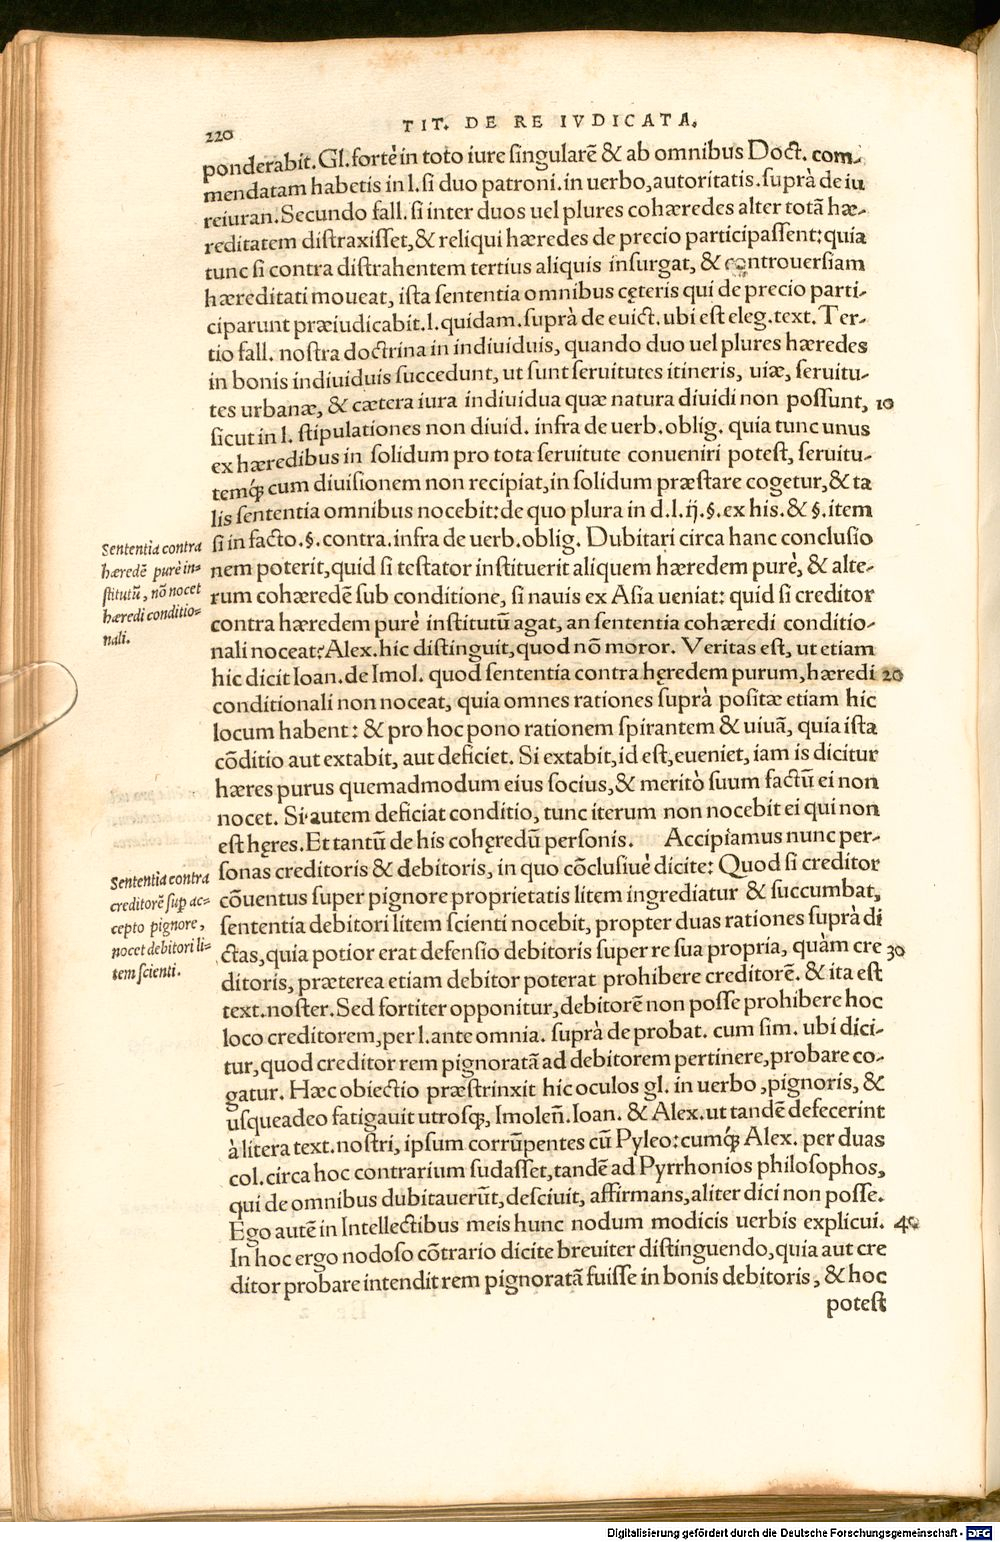 220
TIT. DE RE IVDICATA.
ponderabit. Gl. fortè in toto iure singularē & ab omnibus Doct. com-
mendatam habetis in l. si duo patroni. in uerbo, autoritatis. suprà de iu
reiuran. Secundo fall. si inter duos uel plures cohæredes alter totā hæ-
reditatem distraxisset, & reliqui hæredes de precio participassent: quia
tunc si contra distrahentem tertius aliquis insurgat, & controuersiam
hæreditati moueat, ista sententia omnibus cęteris qui de precio parti-
ciparunt præiudicabit. l. quidam. suprà de euict. ubi est eleg. text. Ter-
tio fall. nostra doctrina in indiuiduis, quando duo uel plures hæredes
in bonis indiuiduis succedunt, ut sunt seruitutes itineris, uiæ, seruitu-
tes urbanæ, & cætera iura indiuidua quæ natura diuidi non possunt, 10
sicut in l. stipulationes non diuid. infra de uerb. oblig. quia tunc unus
ex hæredibus in solidum pro tota seruitute conueniri potest, seruitu-
temq́; cum diuisionem non recipiat, in solidum præstare cogetur, & ta
lis sententia omnibus nocebit: de quo plura in d. l. ij. §. ex his. & §. item
si in facto. §. contra. infra de uerb. oblig. Dubitari circa hanc conclusio
nem poterit, quid si testator instituerit aliquem hæredem purè, & alte-
rum cohæredē sub conditione, si nauis ex Asia ueniat: quid si creditor
contra hæredem purè institutū agat, an sententia cohæredi conditio-
nali noceat? Alex. hic distinguit, quod nō moror. Veritas est, ut etiam
hic dicit Ioan. de Imol. quod sententia contra hęredem purum, hæredi 20
conditionali non noceat, quia omnes rationes suprà positæ etiam hic
locum habent: & pro hoc pono rationem spirantem & uiuā, quia ista
cōditio aut extabit, aut deficiet. Si extabit, id est, eueniet, iam is dicitur
hæres purus quemadmodum eius socius, & meritò suum factū ei non
nocet. Si autem deficiat conditio, tunc iterum non nocebit ei qui non
est hęres. Et tantū de his cohęredū personis. Accipiamus nunc per-
sonas creditoris & debitoris, in quo cōclusiuè dicite: Quod si creditor
cōuentus super pignore proprietatis litem ingrediatur & succumbat,
sententia debitori litem scienti nocebit, propter duas rationes suprà di
ctas, quia potior erat defensio debitoris super re sua propria, quàm cre 30
ditoris, præterea etiam debitor poterat prohibere creditorē. & ita est
text. noster. Sed fortiter opponitur, debitorē non posse prohibere hoc
loco creditorem, per l. ante omnia. suprà de probat. cum sim. ubi dici-
tur, quod creditor rem pignoratā ad debitorem pertinere, probare co-
gatur. Hæc obiectio præstrinxit hic oculos gl. in uerbo, pignoris, &
usqueadeo fatigauit utrosq́;, Imoleñ. Ioan. & Alex. ut tandē defecerint
à litera text. nostri, ipsum corrūpentes cū Pyleo: cumq́; Alex. per duas
col. circa hoc contrarium sudasset, tandē ad Pyrrhonios philosophos,
qui de omnibus dubitauerūt, desciuit, affirmans, aliter dici non posse.
Ego autē in Intellectibus meis hunc nodum modicis uerbis explicui. 40
In hoc ergo nodoso cōtrario dicite breuiter distinguendo, quia aut cre
ditor probare intendit rem pignoratā fuisse in bonis debitoris, & hoc
potest
Sententia contra
hæredē purè in-
stitutū, nō nocet
hæredi conditio-
nali.
Sententia contra
creditorē sup ac-
cepto pignore,
nocet debitori li-
tem scienti.
Digitalisierung gefördert durch die Deutsche Forschungsgemeinschaft - DFG